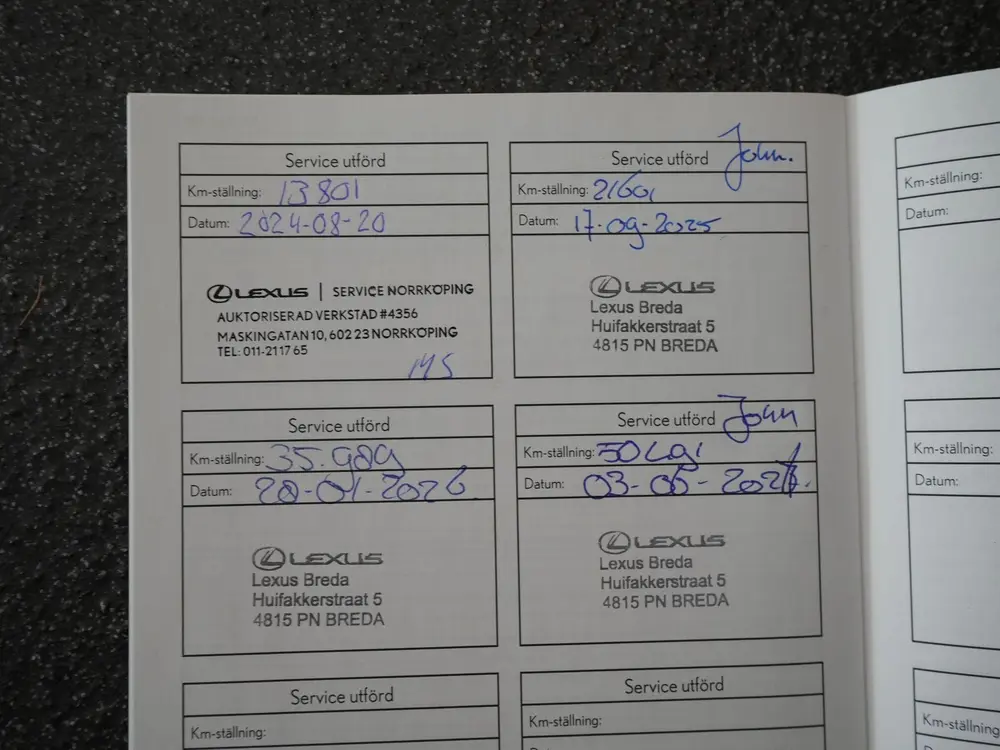 Service utförd
Km-ställning: 13801
Datum: 2024-08-20
LEXUS | SERVICE NORRKÖPING
AUKTORISERAD VERKSTAD #4356
MASKINGATAN 10, 602 23 NORRKÖPING
TEL: 011-2117 65
Service utförd John.
Km-ställning:
Datum: 17-09-2025
LEXUS
Lexus Breda
Huifakkerstraat 5
4815 PN BREDA
Service utförd
Km-ställning: 35.989
Datum: 20-01-2026.
LEXUS
Lexus Breda
Huifakkerstraat 5
4815 PN BREDA
Service utförd John
Km-ställning:
Datum:
LEXUS
Lexus Breda
Huifakkerstraat 5
4815 PN BREDA
Service utförd
Km-ställning:
Service utförd
Km-ställning:
Km-ställning:
Datum:
Km-ställning:
Datum:
Km-ställning